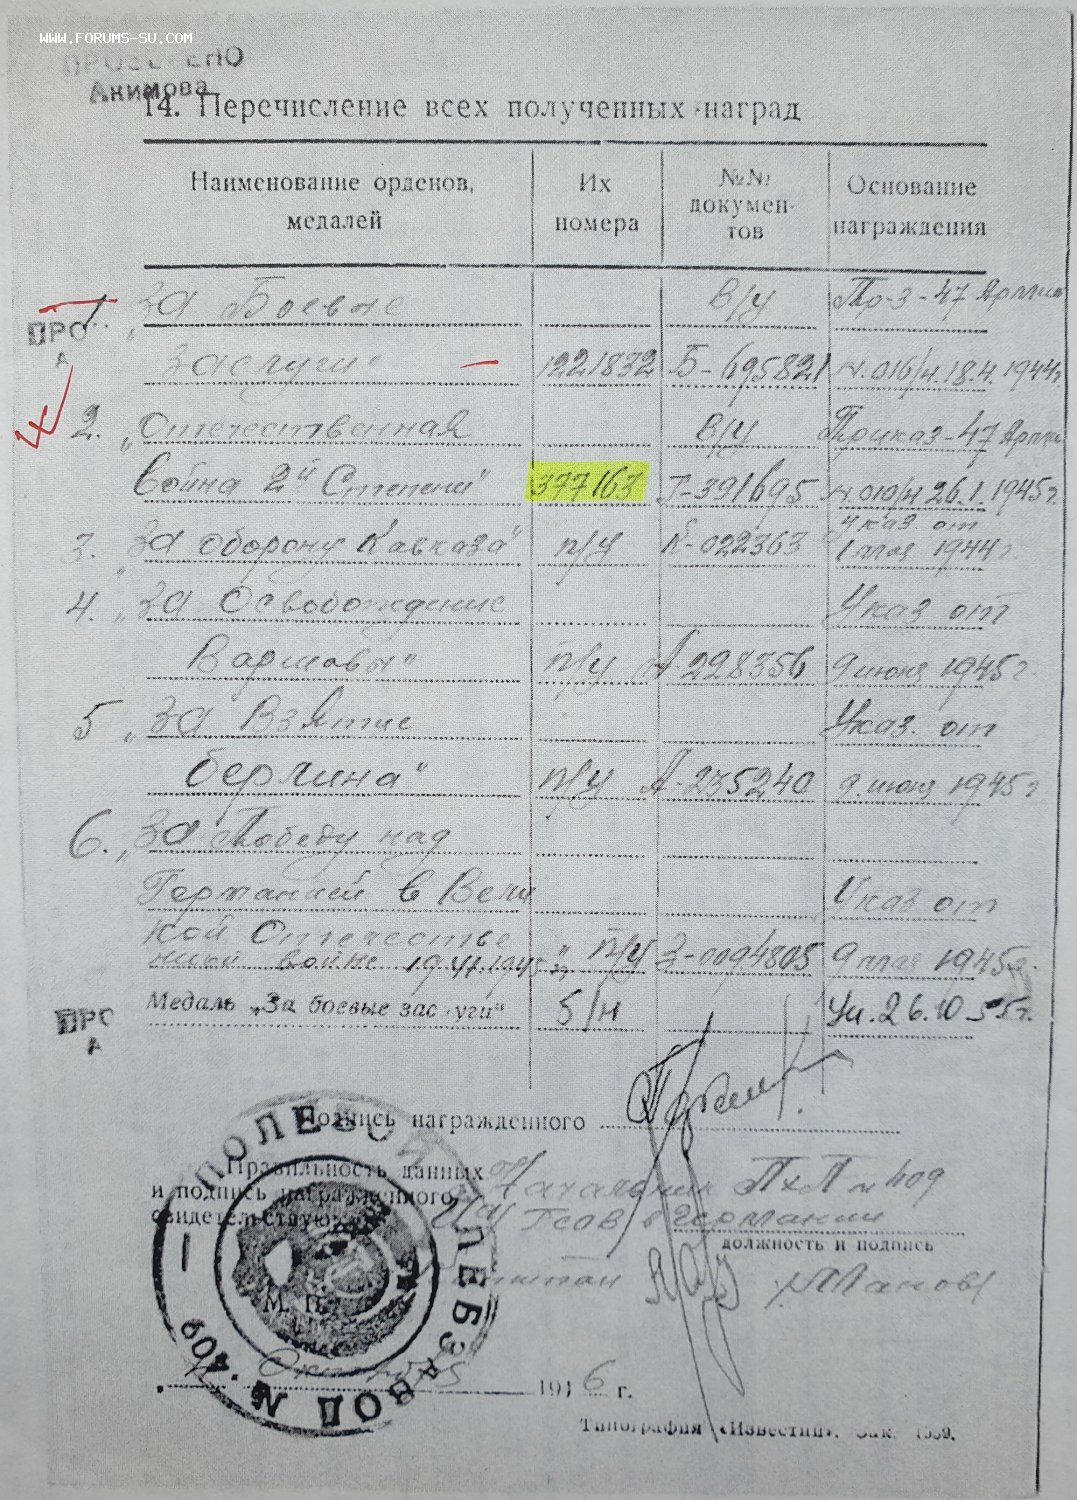 WWW.FORUMS-SU.COM
ПРОВЕРЕНО
Анимова
14. Перечисление всех полученных наград
Наименование орденов, медалей
Их номера
№№ докумен-тов
Основание награждения
1. „За Боевые В/у Пр-з-47 Армии
Заслуги" — 1221832 Б-695821 №016/н. 18.4.1944г
ПРО
А
2. „Отечественная В/у Приказ-47 Армии
война 2й Степени" 377163 Г-391695 №010/н 26.1.1945г.
3. „За оборону Кавказа" п/у К-022363 Указ от 1 мая 1944г.
4. „За Освобождение Указ от
Варшавы" п/у А-228356 9 июня 1945г
5 „За Взятие Указ. от
берлина" п/у А-235240 9. июня 1945г
6. „За Победу над
Германией в Вели Указ от
кой Отечестве
нной войне 1941-1945г" п/у З-0094805 9 мая 1945г.
Медаль „За боевые зас уги" б/н Ук. 26.10.55г.
ПРО
А
Подпись награжденного
Правильность данных
и подпись награжденного
свидетельствую
Начальник ПХП №409
Гсов в Германии
должность и подпись
М. П.
ПОЛЕВОЙ ХЛЕБЗАВОД № 409
Октября 1946 г.
Типография «Известий». Зак. 1539.